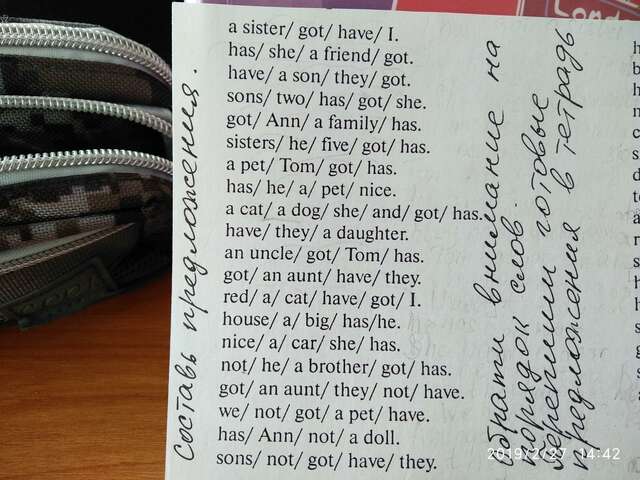 a sister/ got/ have/ I.
has/ she/ a friend/ got.
have/ a son/ they/ got.
sons/ two/ has/ got/ she.
got/ Ann/ a family/ has.
sisters/ he/ five/ got/ has.
a pet/ Tom/ got/ has.
has/ he/ a/ pet/ nice.
a cat/ a dog/ she/ and/ got/ has.
have/ they/ a daughter.
an uncle/ got/ Tom/ has.
got/ an aunt/ have/ they.
red/ a/ cat/ have/ got/ I.
house/ a/ big/ has/he.
nice/ a/ car/ she/ has.
not/ he/ a brother/ got/ has.
got/ an aunt/ they/ not/ have.
we/ not/ got/ a pet/ have.
has/ Ann/ not/ a doll.
sons/ not/ got/ have/ they.
Составь предложения.
Обрати внимание на
порядок слов.
Перепиши готовые
предложения в тетрадь
2019/2/27 14:42